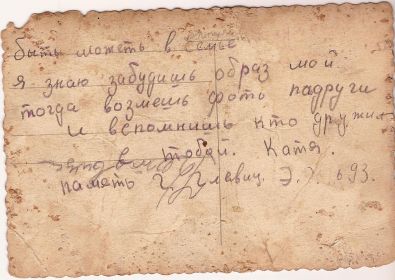 быть может в семье
я знаю забудишь образ мой
тогда возмешь фоть падруги
и вспомнишь кто дружил
с тобой. Катя.
память